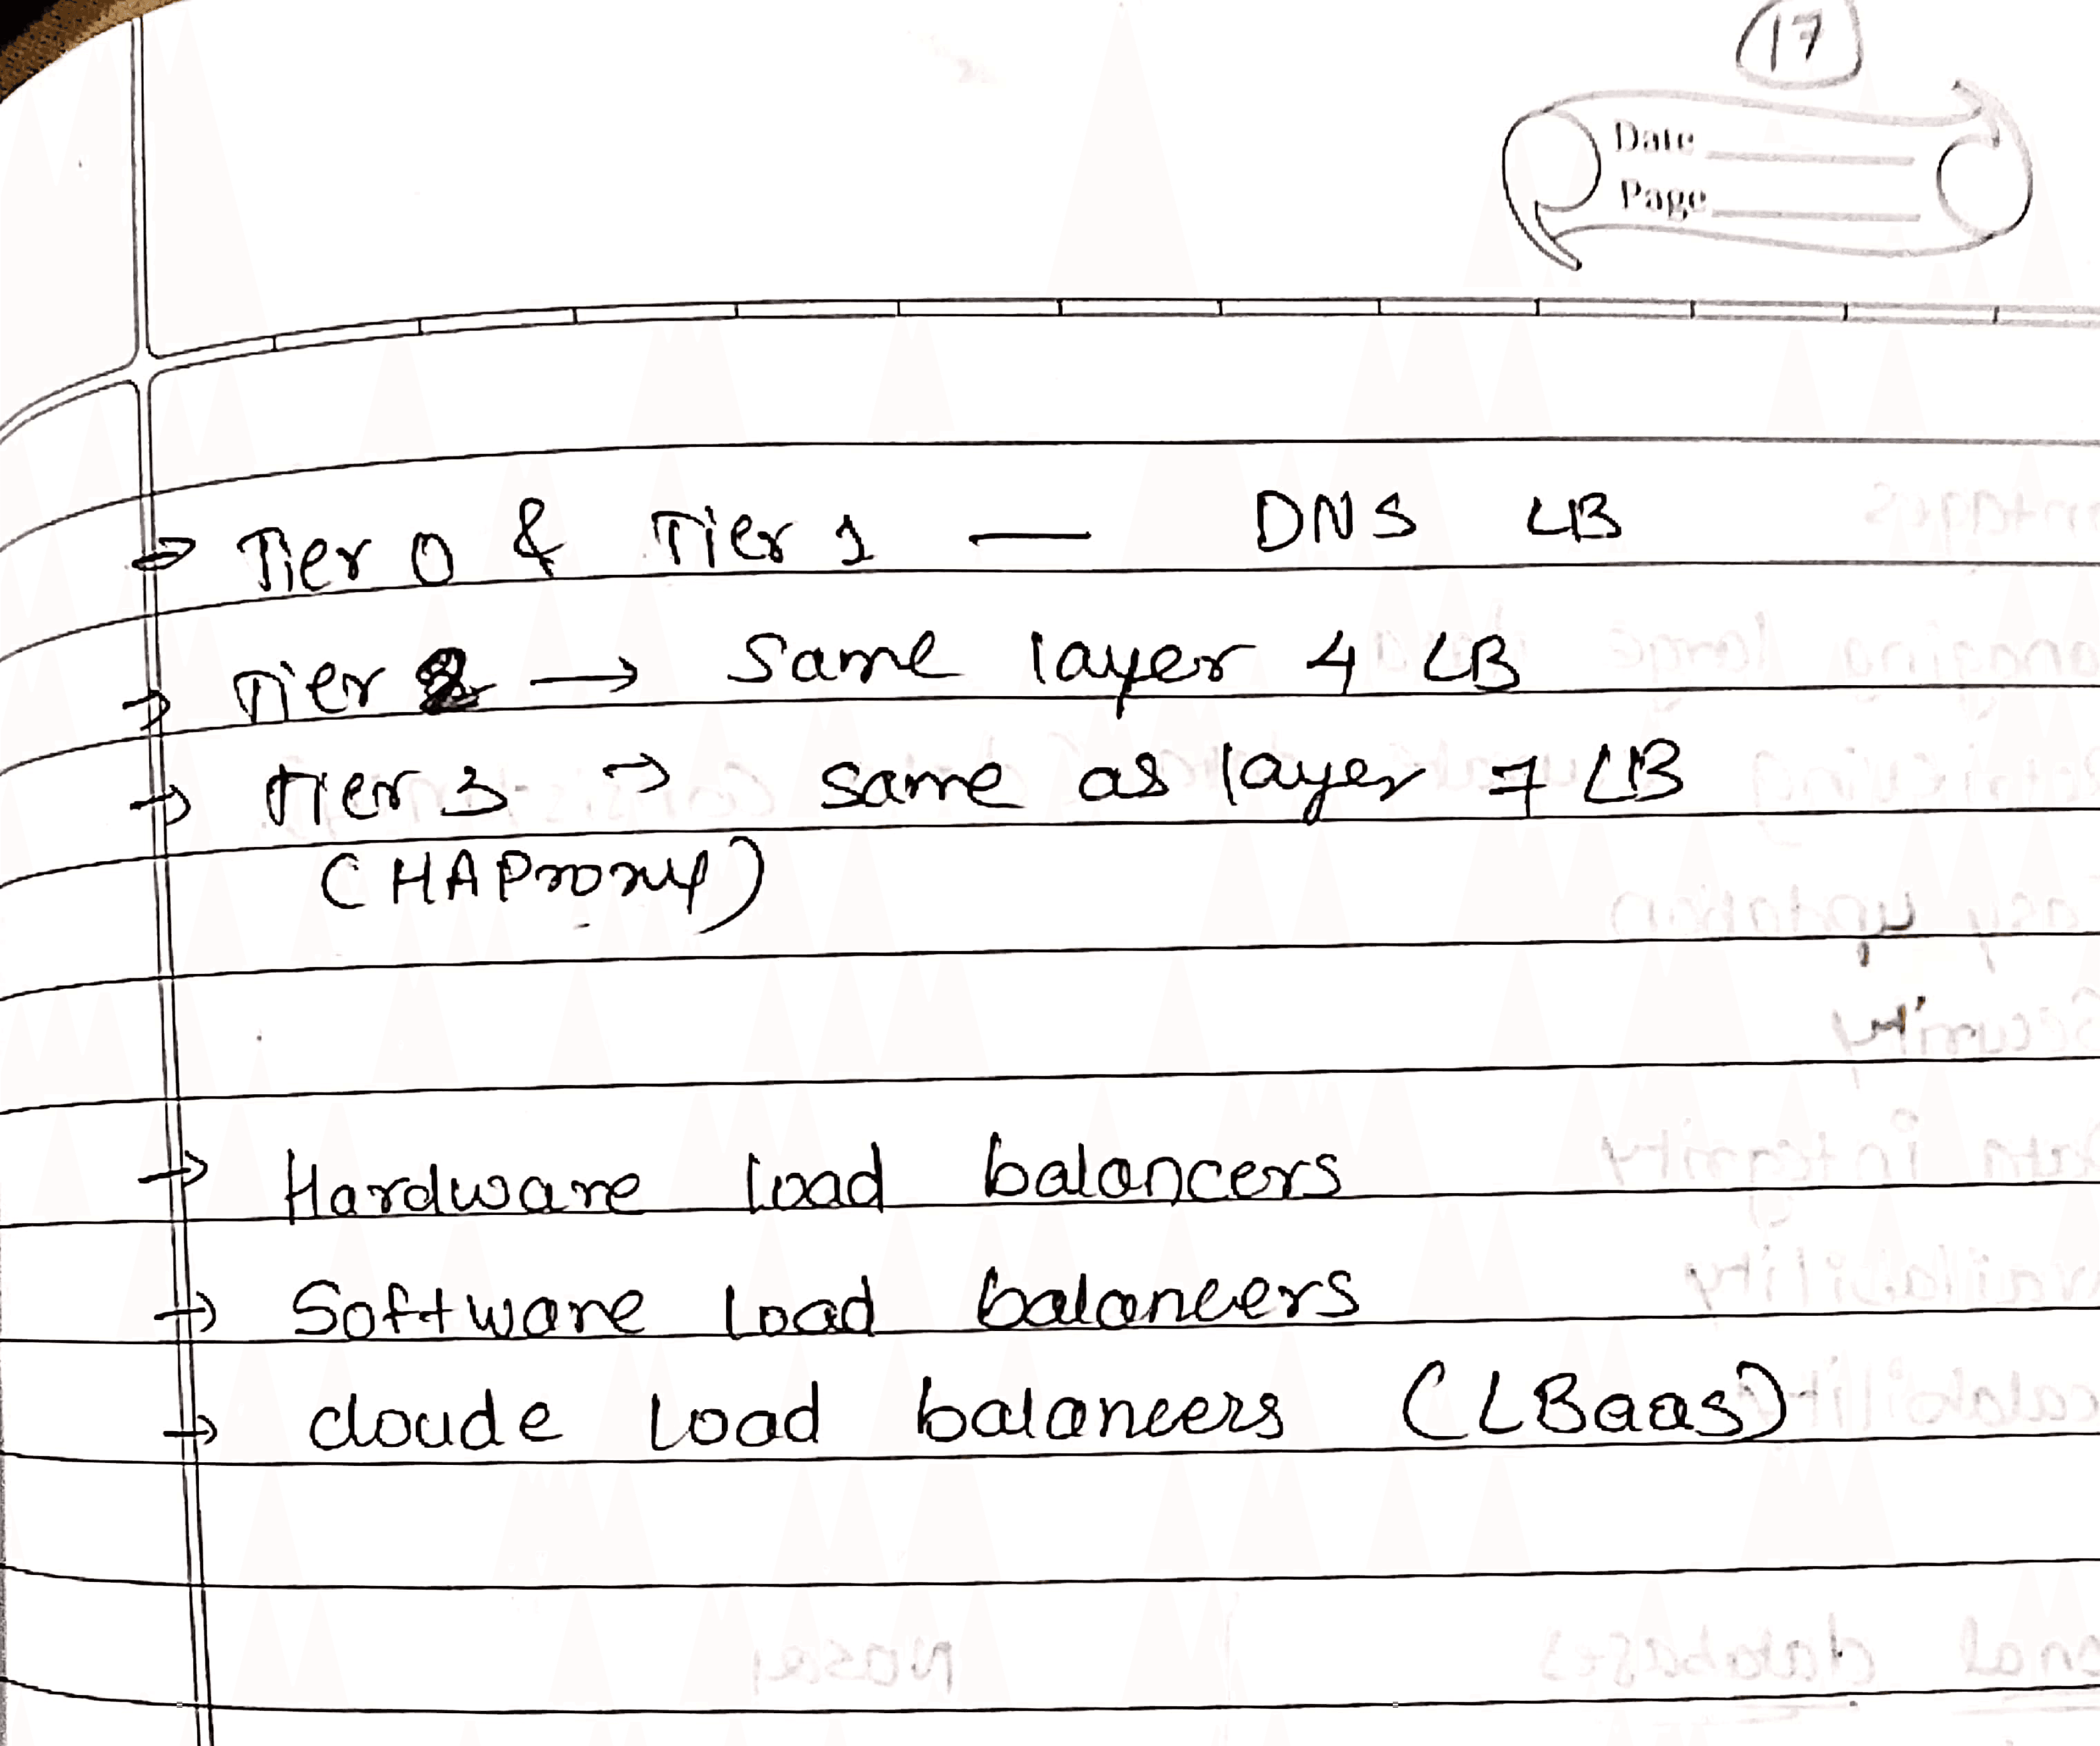 17
Date
Page
→ Tier 0 & Tier 1 — DNS LB
→ Tier 2 → Same layer 4 LB
→ tier 3 → same as layer 7 LB
(HAProxy)
→ Hardware load balancers
→ Software load balancers
→ cloude load balancers (LBaas)